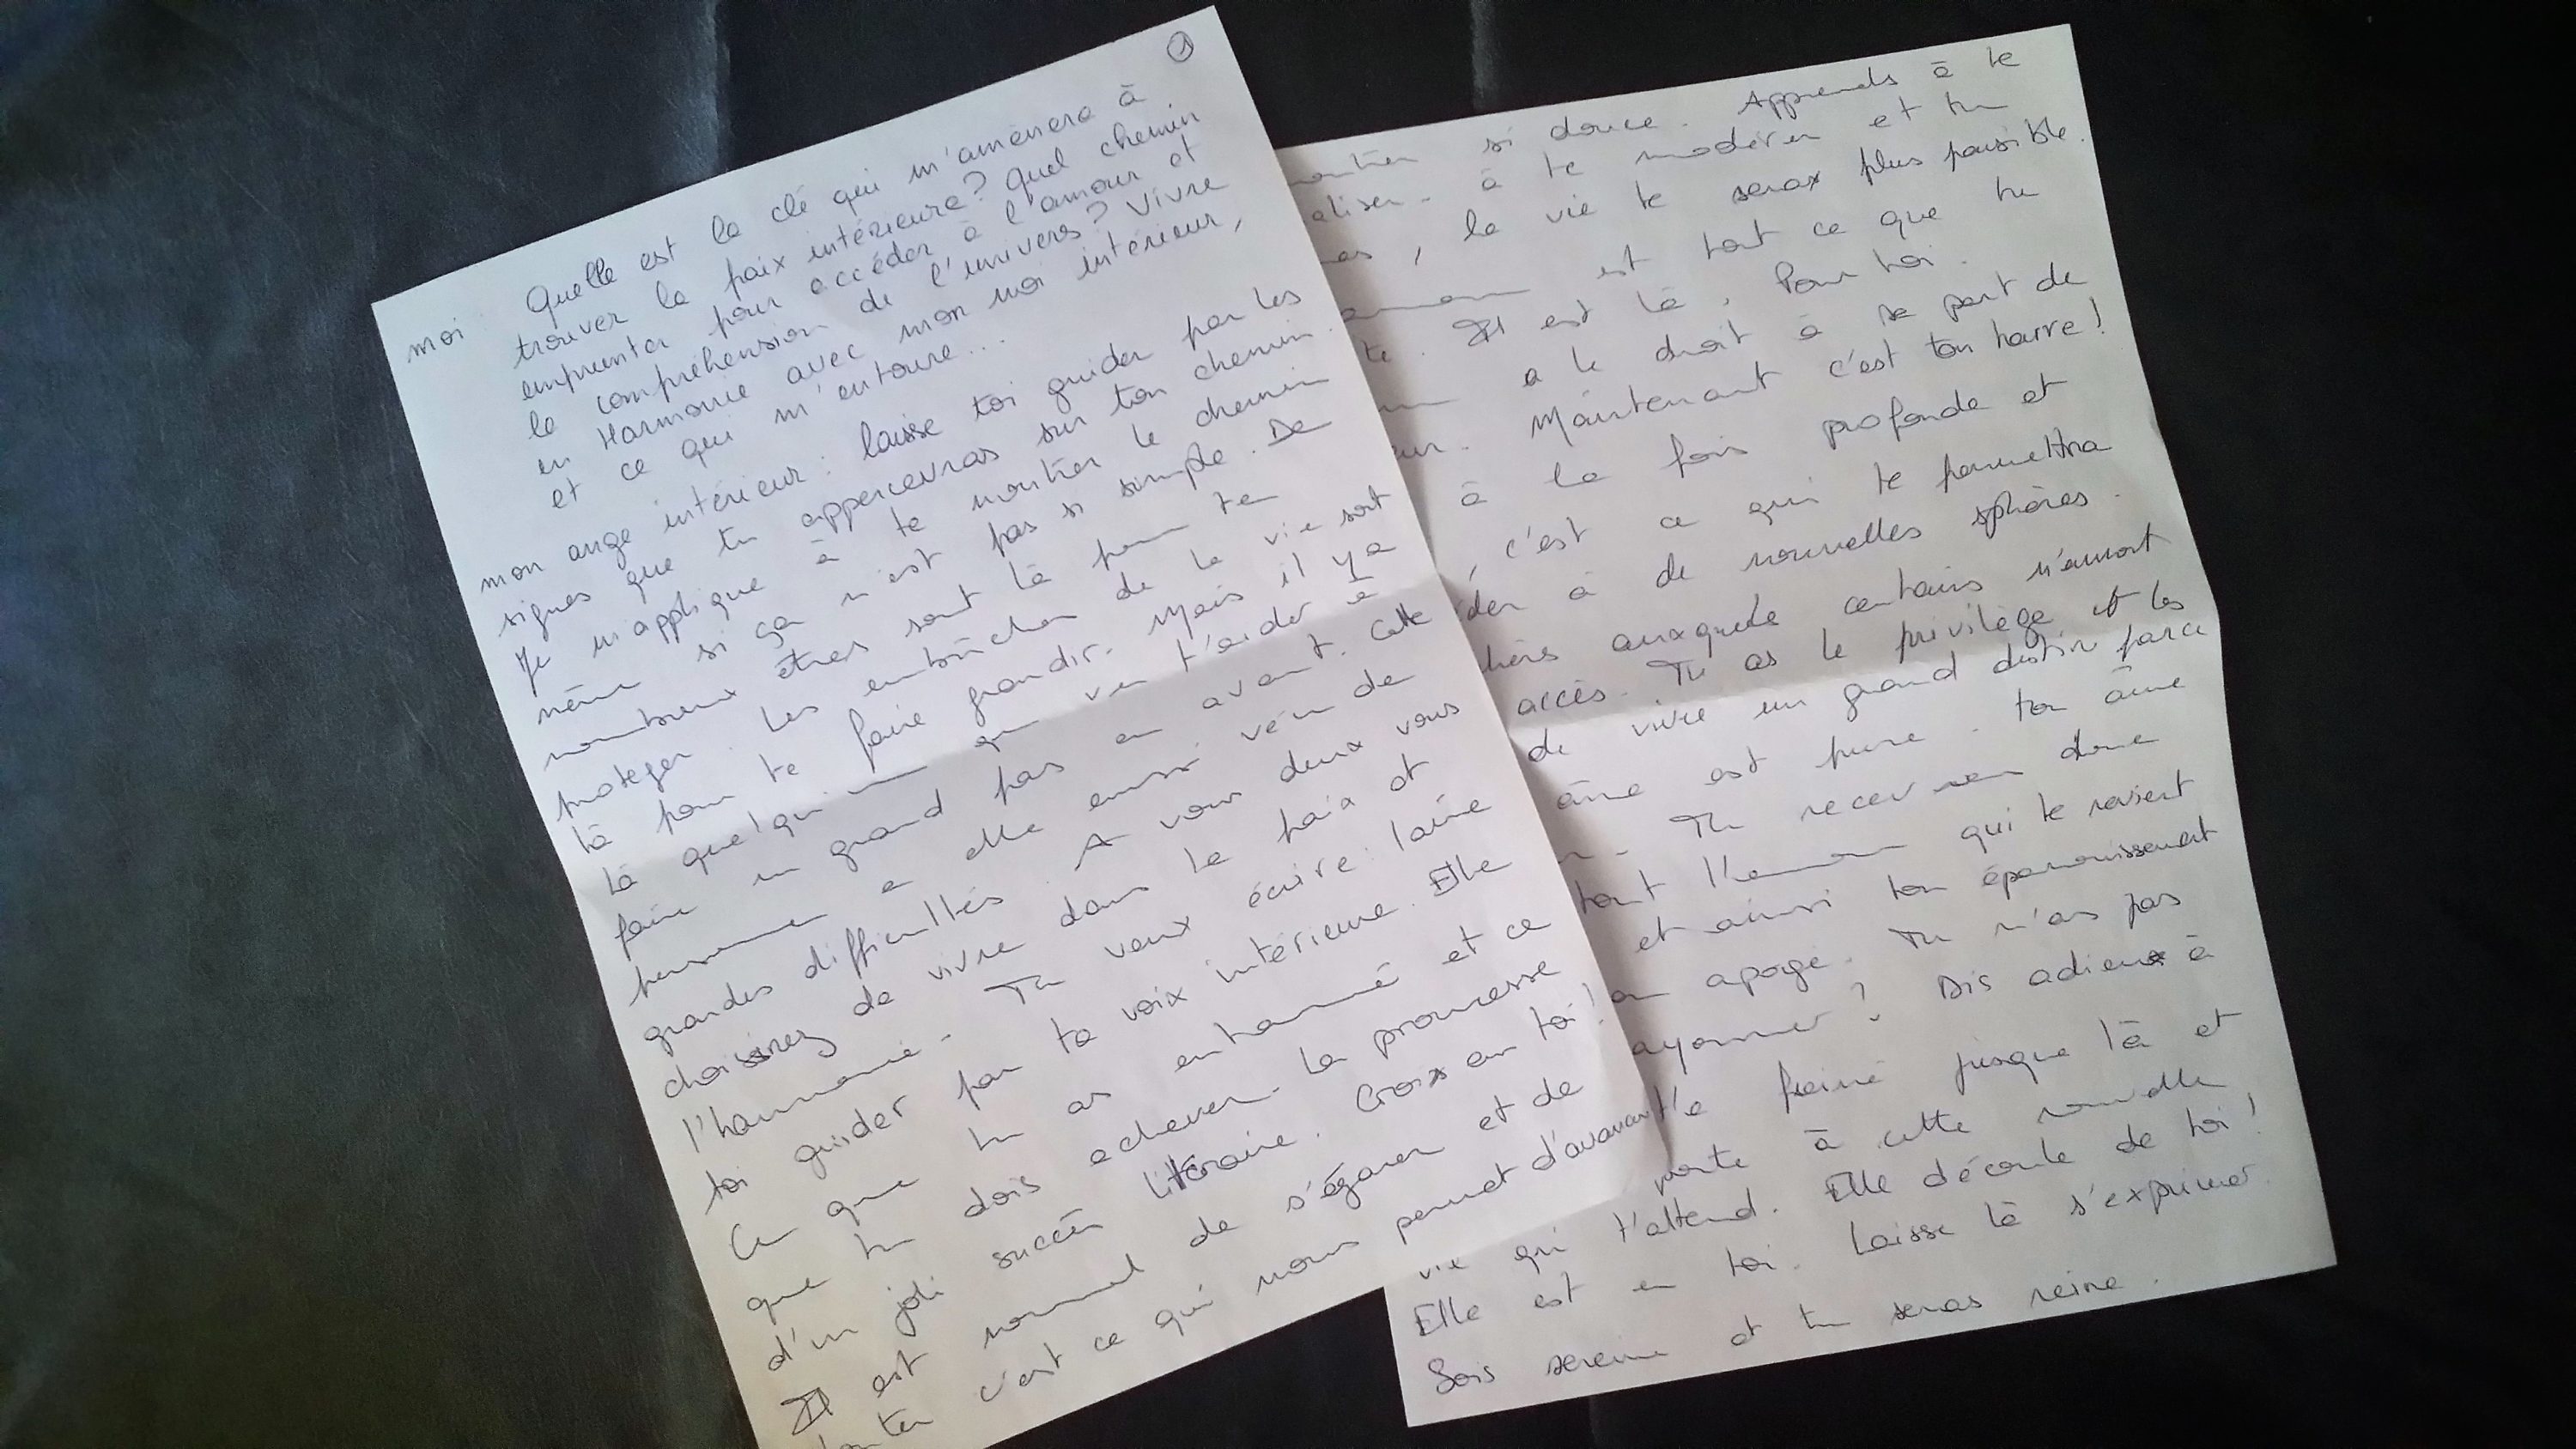 ①
moi Quelle est la clé qui m'amènera à
trouver la paix intérieure? Quel chemin
emprunter pour accéder à l'amour et
la compréhension de l'univers? Vivre
en Harmonie avec mon moi intérieur,
et ce qui m'entoure...
mon ange intérieur: laisse toi guider par les
signes que tu appercevras sur ton chemin.
Je m'applique à te montrer le chemin
même si ça n'est pas si simple. De
nombreux êtres sont là pour te
protéger. Les embûches de la vie sont
là pour te faire grandir. Mais il y a
là quelqu'un qui va t'aider à
faire un grand pas en avant. Cette
personne a elle aussi vécu de
grandes difficultés. A vous deux vous
choisirez de vivre dans la paix et
l'harmonie. Tu veux écrire: laisse
toi guider par ta voix intérieure. Elle
Ce que tu as entamé et ce
que tu dois achever. La promesse
d'un joli succès littéraire. Crois en toi!
Il est normal de s'égarer et de
c'est ce qui nous permet d'avan
si douce. Apprends à te
à te modérer et tu
, la vie te sera plus paisible.
est tout ce que tu
Il est là. Pour toi.
a le droit à sa part de
Maintenant c'est ton havre!
à la fois profonde et
, c'est ce qui te permettra
à de nouvelles sphères.
auxquels certains n'auront
accès. Tu as le privilège et les
de vivre un grand destin parce
âme est pure. ton âme
Tu recevras donc
tout l'amour qui te revient
et ainsi ton épanouissement
apogé. Tu n'as pas
? Dis adieu à
t'a freiné jusque là et
porte à cette nouvelle
vie qui t'attend. Elle découle de toi!
Elle est en toi. Laisse là s'exprimer.
Sois sereine et tu seras reine.